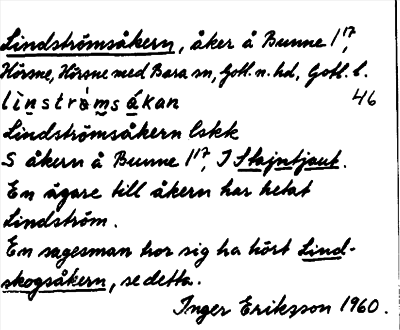 Lindströmsåkern, åker å Bunne 1¹⁷,
Hörsne, Hörsne med Bara sn, Gotl. n. hd, Gotl. l.
linströmsåkan 46
Lindströmsåkern lskk
S åkern å Bunne 1¹⁷, I Stajntjaut.
En ägare till åkern har hetat
Lindström.
En sagesman tror sig ha hört Lind-
skogsåkern, se detta.
Inger Eriksson 1960.